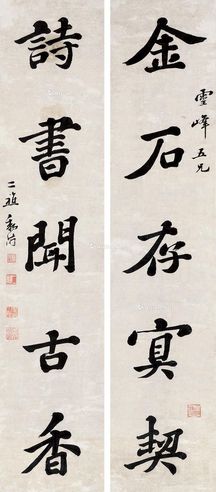 金石存寘契
雲峰五兄
詩書聞古香